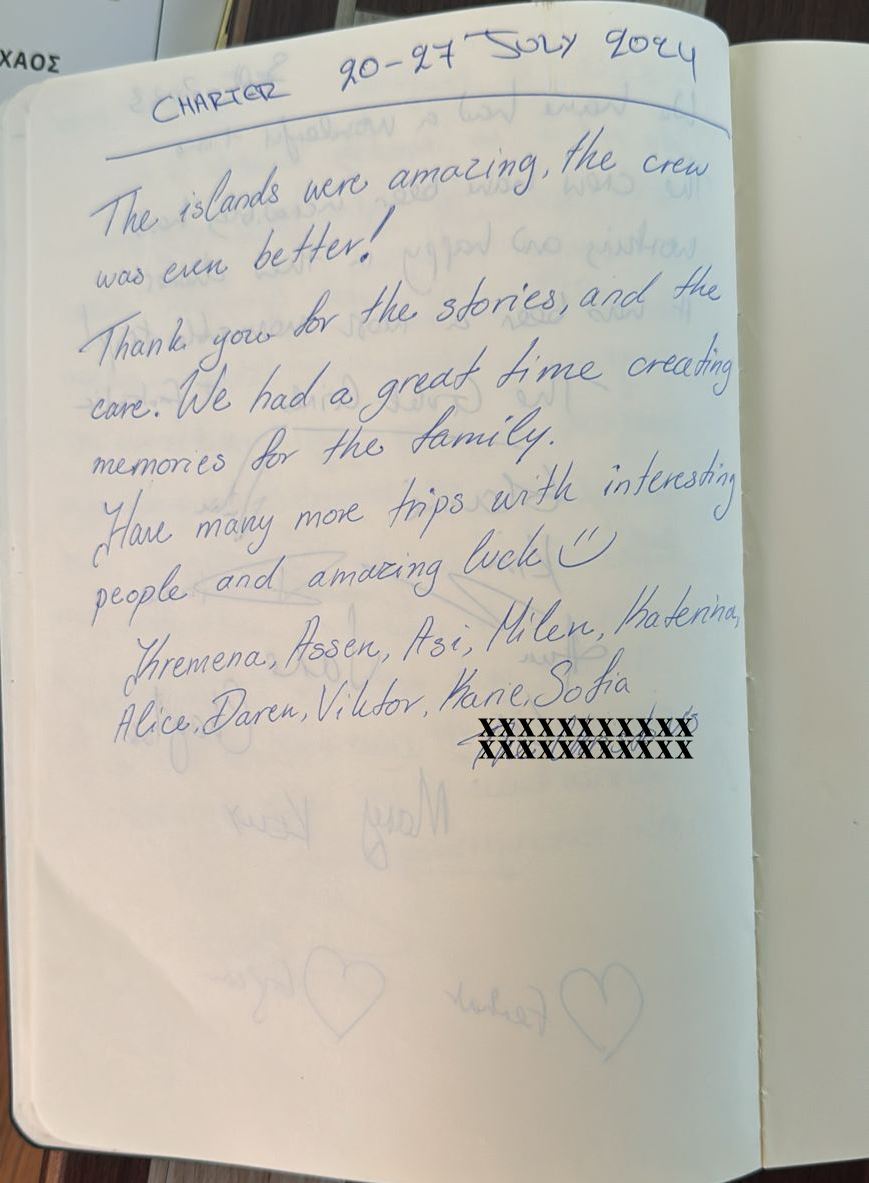 ΧΑΟΣ
CHARTER 20-27 JULY 2024
The islands were amazing, the crew
was even better!
Thank you for the stories, and the
care. We had a great time creating
memories for the family.
Have many more trips with interesting
people and amazing luck
Kremena, Assen, Asi, Milen, Katerina,
Alice, Daren, Viktor, Karie, Sofia
XXXXXXXXXXX
XXXXXXXXXXX